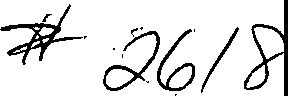 # 2618